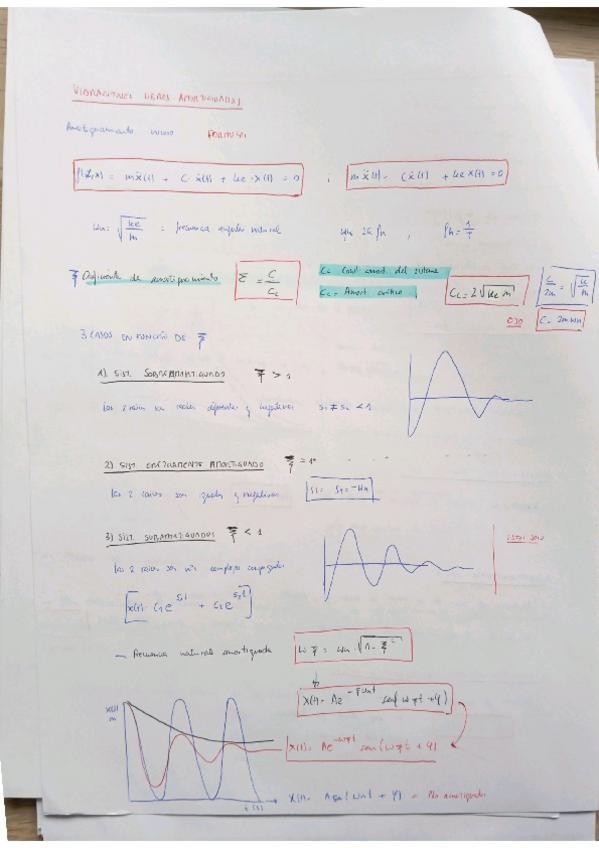 VIBRACIONES LIBRES AMORTIGUADAS
Amortiguamiento viscoso
f(t,x) = mẍ(t) + C·ẋ(t) + ke·x(t) = 0 ; mẍ(t) + Cẋ(t) + ke x(t) = 0
ωn = √(ke/m) = frecuencia natural ωn = 2π fn , fn = 1/T
ξ Coeficiente de amortiguamiento ξ = C/Cc
Cc = Amort. crítico Cc = 2√(ke·m) C/2m = √(k/m)
OJO C = 2mωn
3 CASOS EN FUNCIÓN DE ξ
1) SIST. SOBREAMORTIGUADO ξ > 1
Las 2 raíces son reales diferentes y negativas s1 ≠ s2 < 1
2) SIST. CRÍTICAMENTE AMORTIGUADO ξ = 1
Las 2 raíces son iguales y negativas s1 = s2 = -ωn
3) SIST. SUBAMORTIGUADOS ξ < 1
Las 2 raíces son complejas conjugadas
x(t) = C1e^(s1t) + C2e^(s2t)
— Frecuencia natural amortiguada ωξ = ωn·√(1-ξ²)
x(t) = Ae^(-ξωnt) sen(ωξt + φ)
x(t)
m
x(t) = Ae^(-ωξt) sen(ωξt + φ)
t(s)
x(t) = A sen(ωnt + φ) = No amortiguado